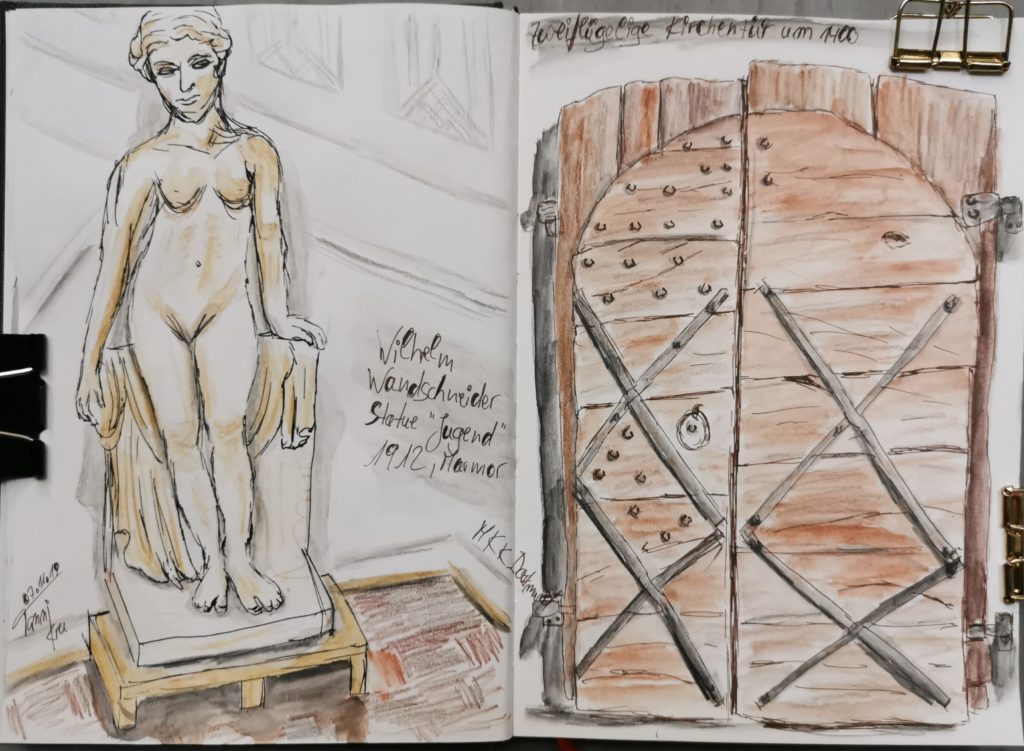 Wilhelm
Wandschneider
Statue "Jugend"
1912, Marmor
MKK Dortmu
Zweiflügelige Kirchentür um 1400